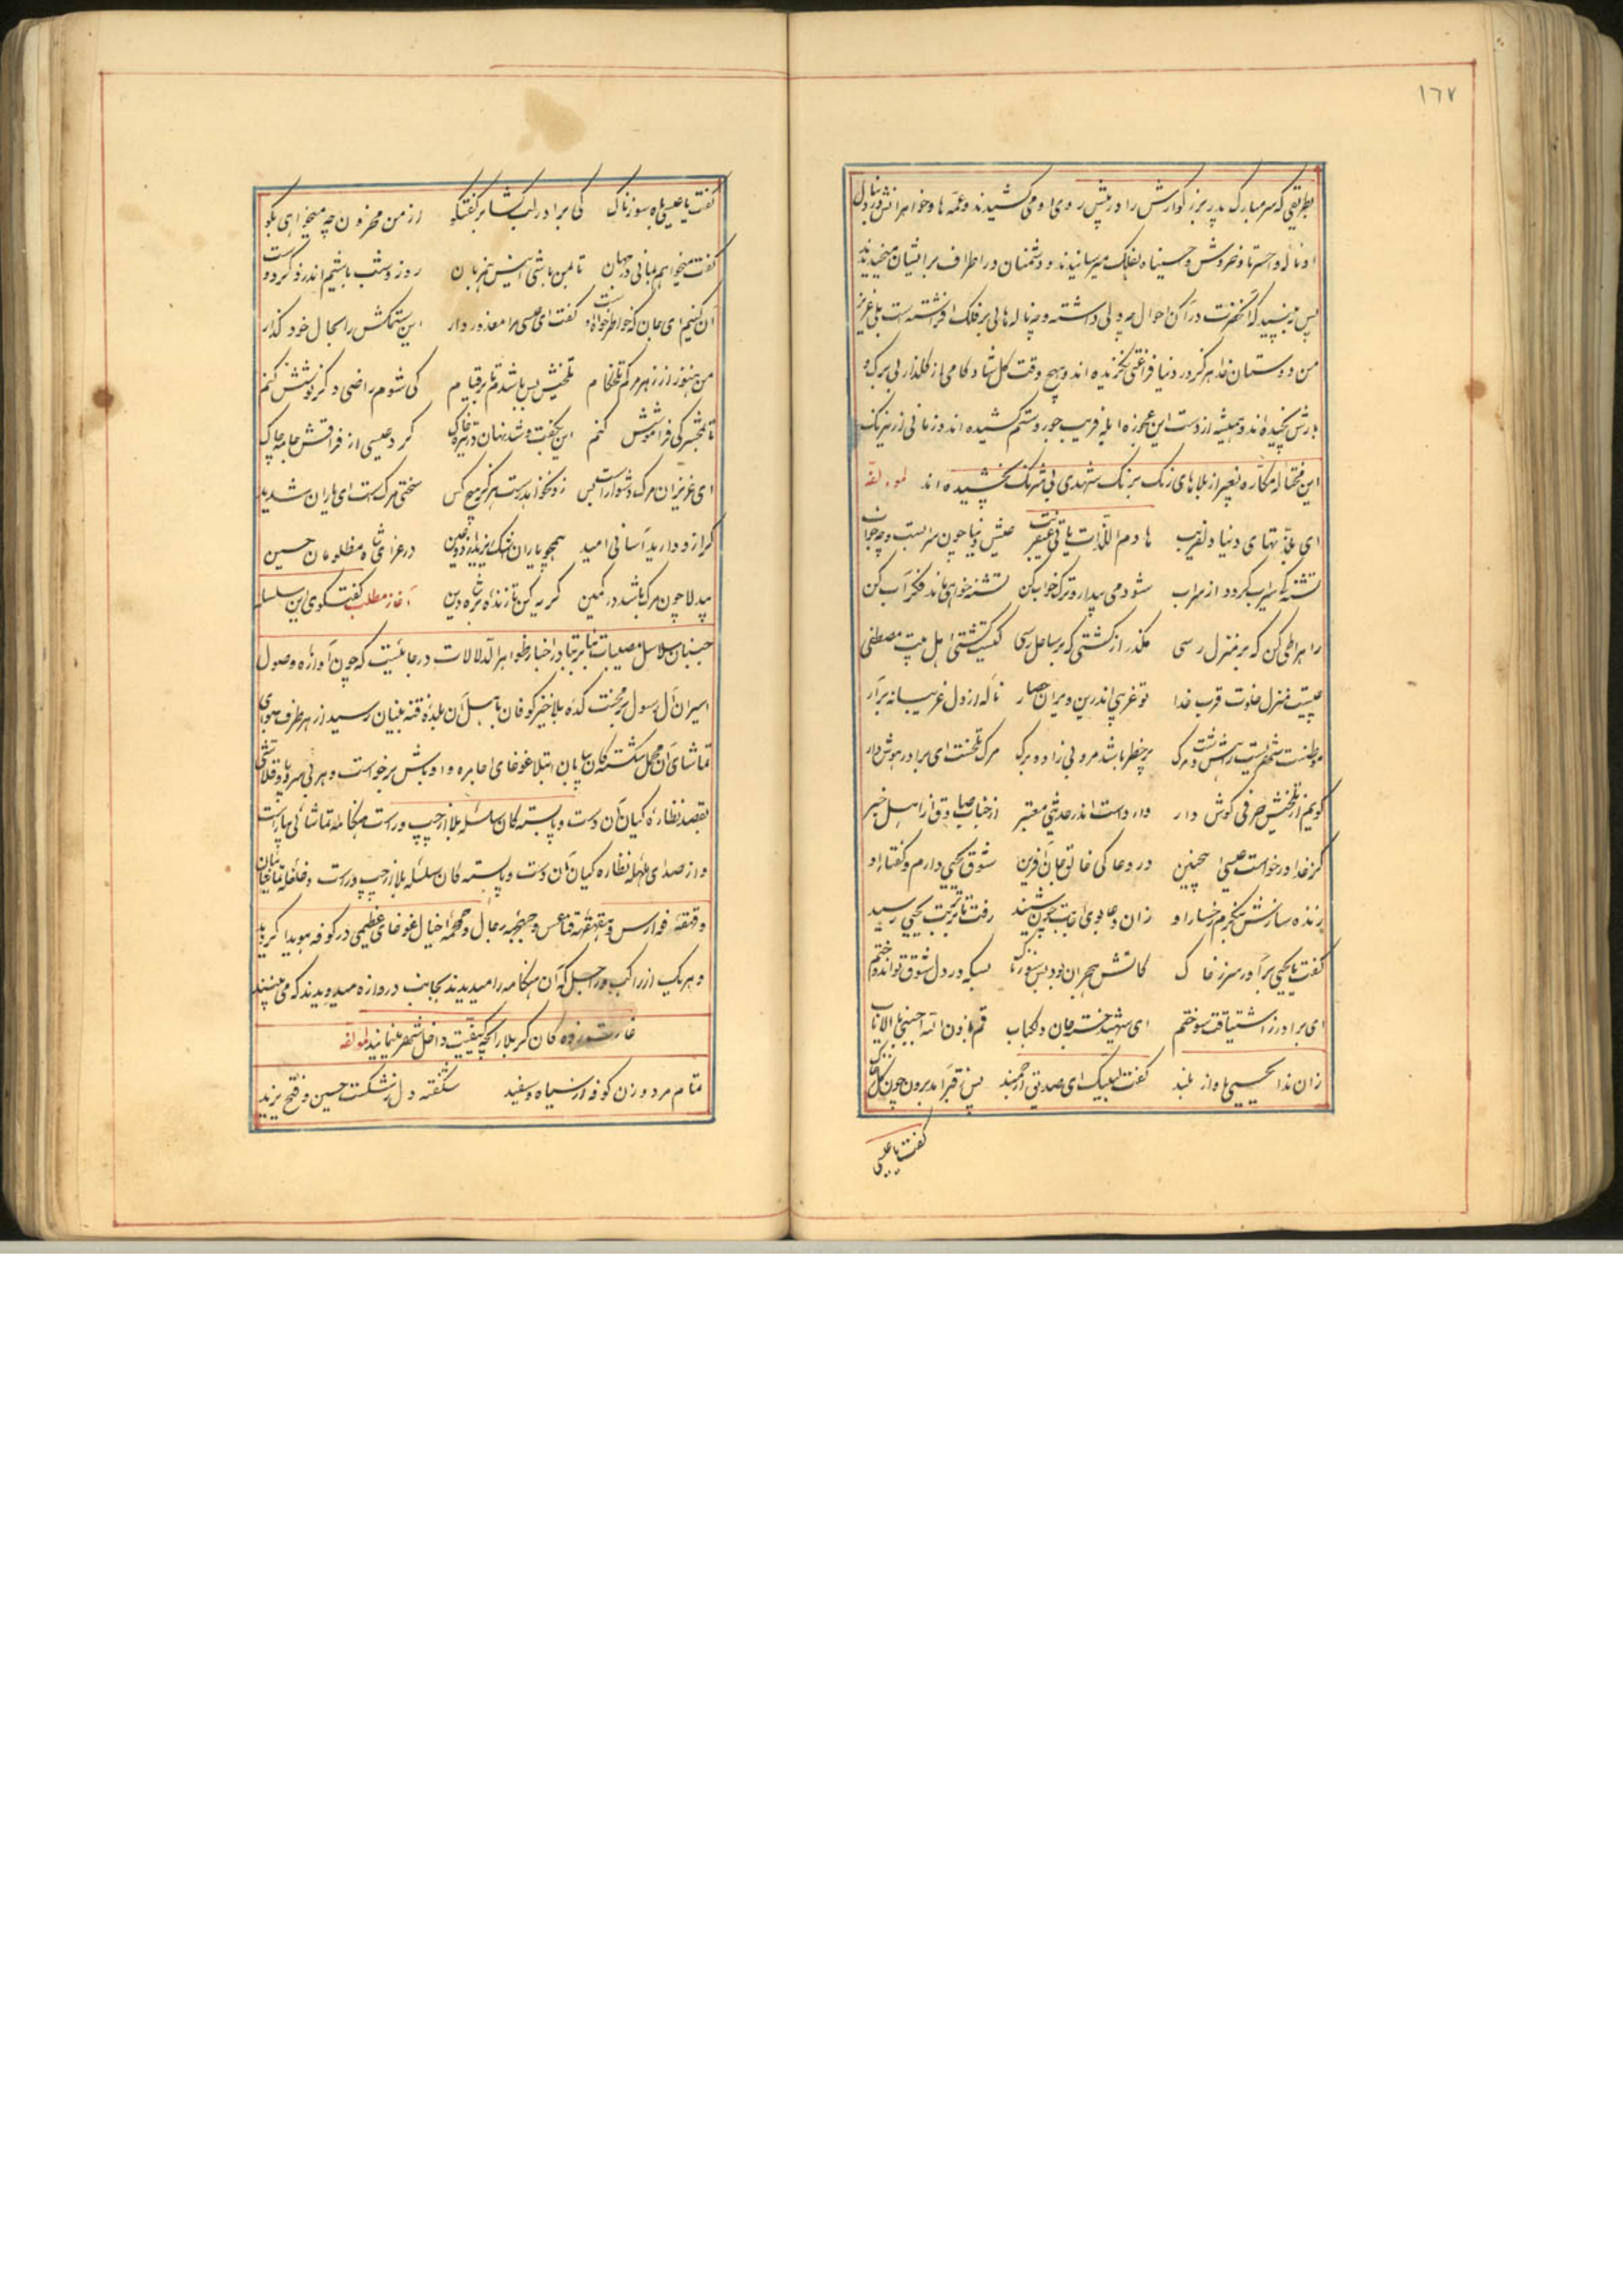 ١٦٧
بطریقی که سر مبارک پدر بزرگوارش را در پیش روی او می کشیدند و عمه ها و خواهرانش در دنبال
او ناله وا حسرتا و خروش وا حسیناه بفلک میرسانیدند و دشمنان در اطراف بر ایشان میخندیدند
پس به بینید که آنحضرت در آن احوال چه دلی داشته و چه ناله هائی بر فلک افراشته است بلی عزیز
من دوستان خدا هرگز در دنیا فراغتی نگزیده اند و هیچ وقت گل شاد کامی از گلزار بی برک و
بارش نچیده اند و همیشه از دست این عجوزه ابله فریب جور و ستم کشیده اند و زمانی از نیرنک
این محتاله مکاره بغیر از بلاهای رنک برنک شهدی بی شرنک نچشیده اند لمولفه
ای بلذتهای دنیا دلفریب هادم اللذات یاتی عنقریب عیش دنیا چون سرابست و چو خواب
تشنه کی سیراب گردد از سراب شود می بیدار و ترک خواب کن تشنه خواهی ماند فکر آب کن
راه را طی کن که بر منزل رسی مگذر از کشتی که بر ساحل رسی کیست کشتی اهل بیت مصطفی
چیست منزل خلوت قرب خدا تو غریبی اندرین ویران حصار ناله از دل غریبانه برآر
پر خطر باشد مرو بی زاد و برک مرک تلخست ای برادر هوش دار
گویم از تلخیش حرفی گوش دار وارد است اندر حدیثی معتبر از جناب صادق از اهل خبر
کز خدا درخواست عیسی اینچنین در دعا کی خالق جان آفرین شوق یحیی دارم و گفتار او
زنده سازش بنگرم رخسار او زان دعا بوی اجابت چون شنید رفت تا تربت یحیی رسید
گفت یا یحیی برآور سر ز خاک کاتش هجران بود بس سوزناک بسکه در دل شوق تو اندوختم
ای برادر ز اشتیاقت سوختم ای شهید خسته جان دلکباب قم باذن الله اجبنی بالایاب
زان ندا یحیی باه از بلند گفت لبیک ای صدیق ارجمند پس ز قبر آمد برون چون گل ز خاک
گفت با عیسی
گفت با عیسی باه سوزناک کی برادر لب گشا بر گفتگو از من محزون چه میخواهی بگو
گفت میخواهم بمانی در جهان تا بمن باشی انیس مهربان روز و شب باشیم اندر ذکر دوست
آن کنیم ای جان که خاطرخواه اوست گفت ای عیسی مرا معذور دار این ستمکش را بحال خود گذار
من هنوز از زهر مرگم تلخکام تلخیش بس باشدم تا بر قیام کی شوم راضی دگر نوشش کنم
تا بمحشر کی فراموشش کنم این بگفت و شد نهان در تیره خاک کرد عیسی از فراقش جامه چاک
ای عزیزان مرک دشوار است بس زو نخواهد رست هرگز هیچ کس سختی مرکست ای یاران شدید
گر از و دارید آسانی امید همچو باران اشک ریزید از دو عین در عزای شاه مظلومان حسین
بیدلا چون مرک باشد در کمین گریه کن تا زنده بر شاه دین آغاز مطلب گفتگوی این سلسله
جنبان سلاسل مصیبات بنابر تبادر اخبار ظواهر الدلالات در جائیست که چون آوازه وصول
اسیران آل رسول بر محنت کده بلا خیز کوفان باهل آن بلده فتنه بنیان رسید از هر طرف هوای
تماشای آن محمل شکسته گان بیابان ابتلا غوغای اجامره و اوباش برخواست و هر بی سر و پا و قلاشی
بقصد نظاره کیان آن دست و پا بسته گان سلسله بلا از چپ و راست هنگامه تماشائی بیاراست
و از صدای نظاره کیان آن دست و پا بسته گان سلسله بلا از چپ و راست
و قهقهه فوارس و رجال و غوغای عظیمی در کوفه هویدا گردید
و هر یک از راکب و راجل که آن هنگامه را میدیدند بجانب دروازه میدویدند که می بینند
غارت زده گان کربلا را بچه کیفیت داخل شهر مینمایند لمولفه
تمام مرد و زن کوفه از سیاه و سفید شکفته دل ز شکست حسین و فتح یزید